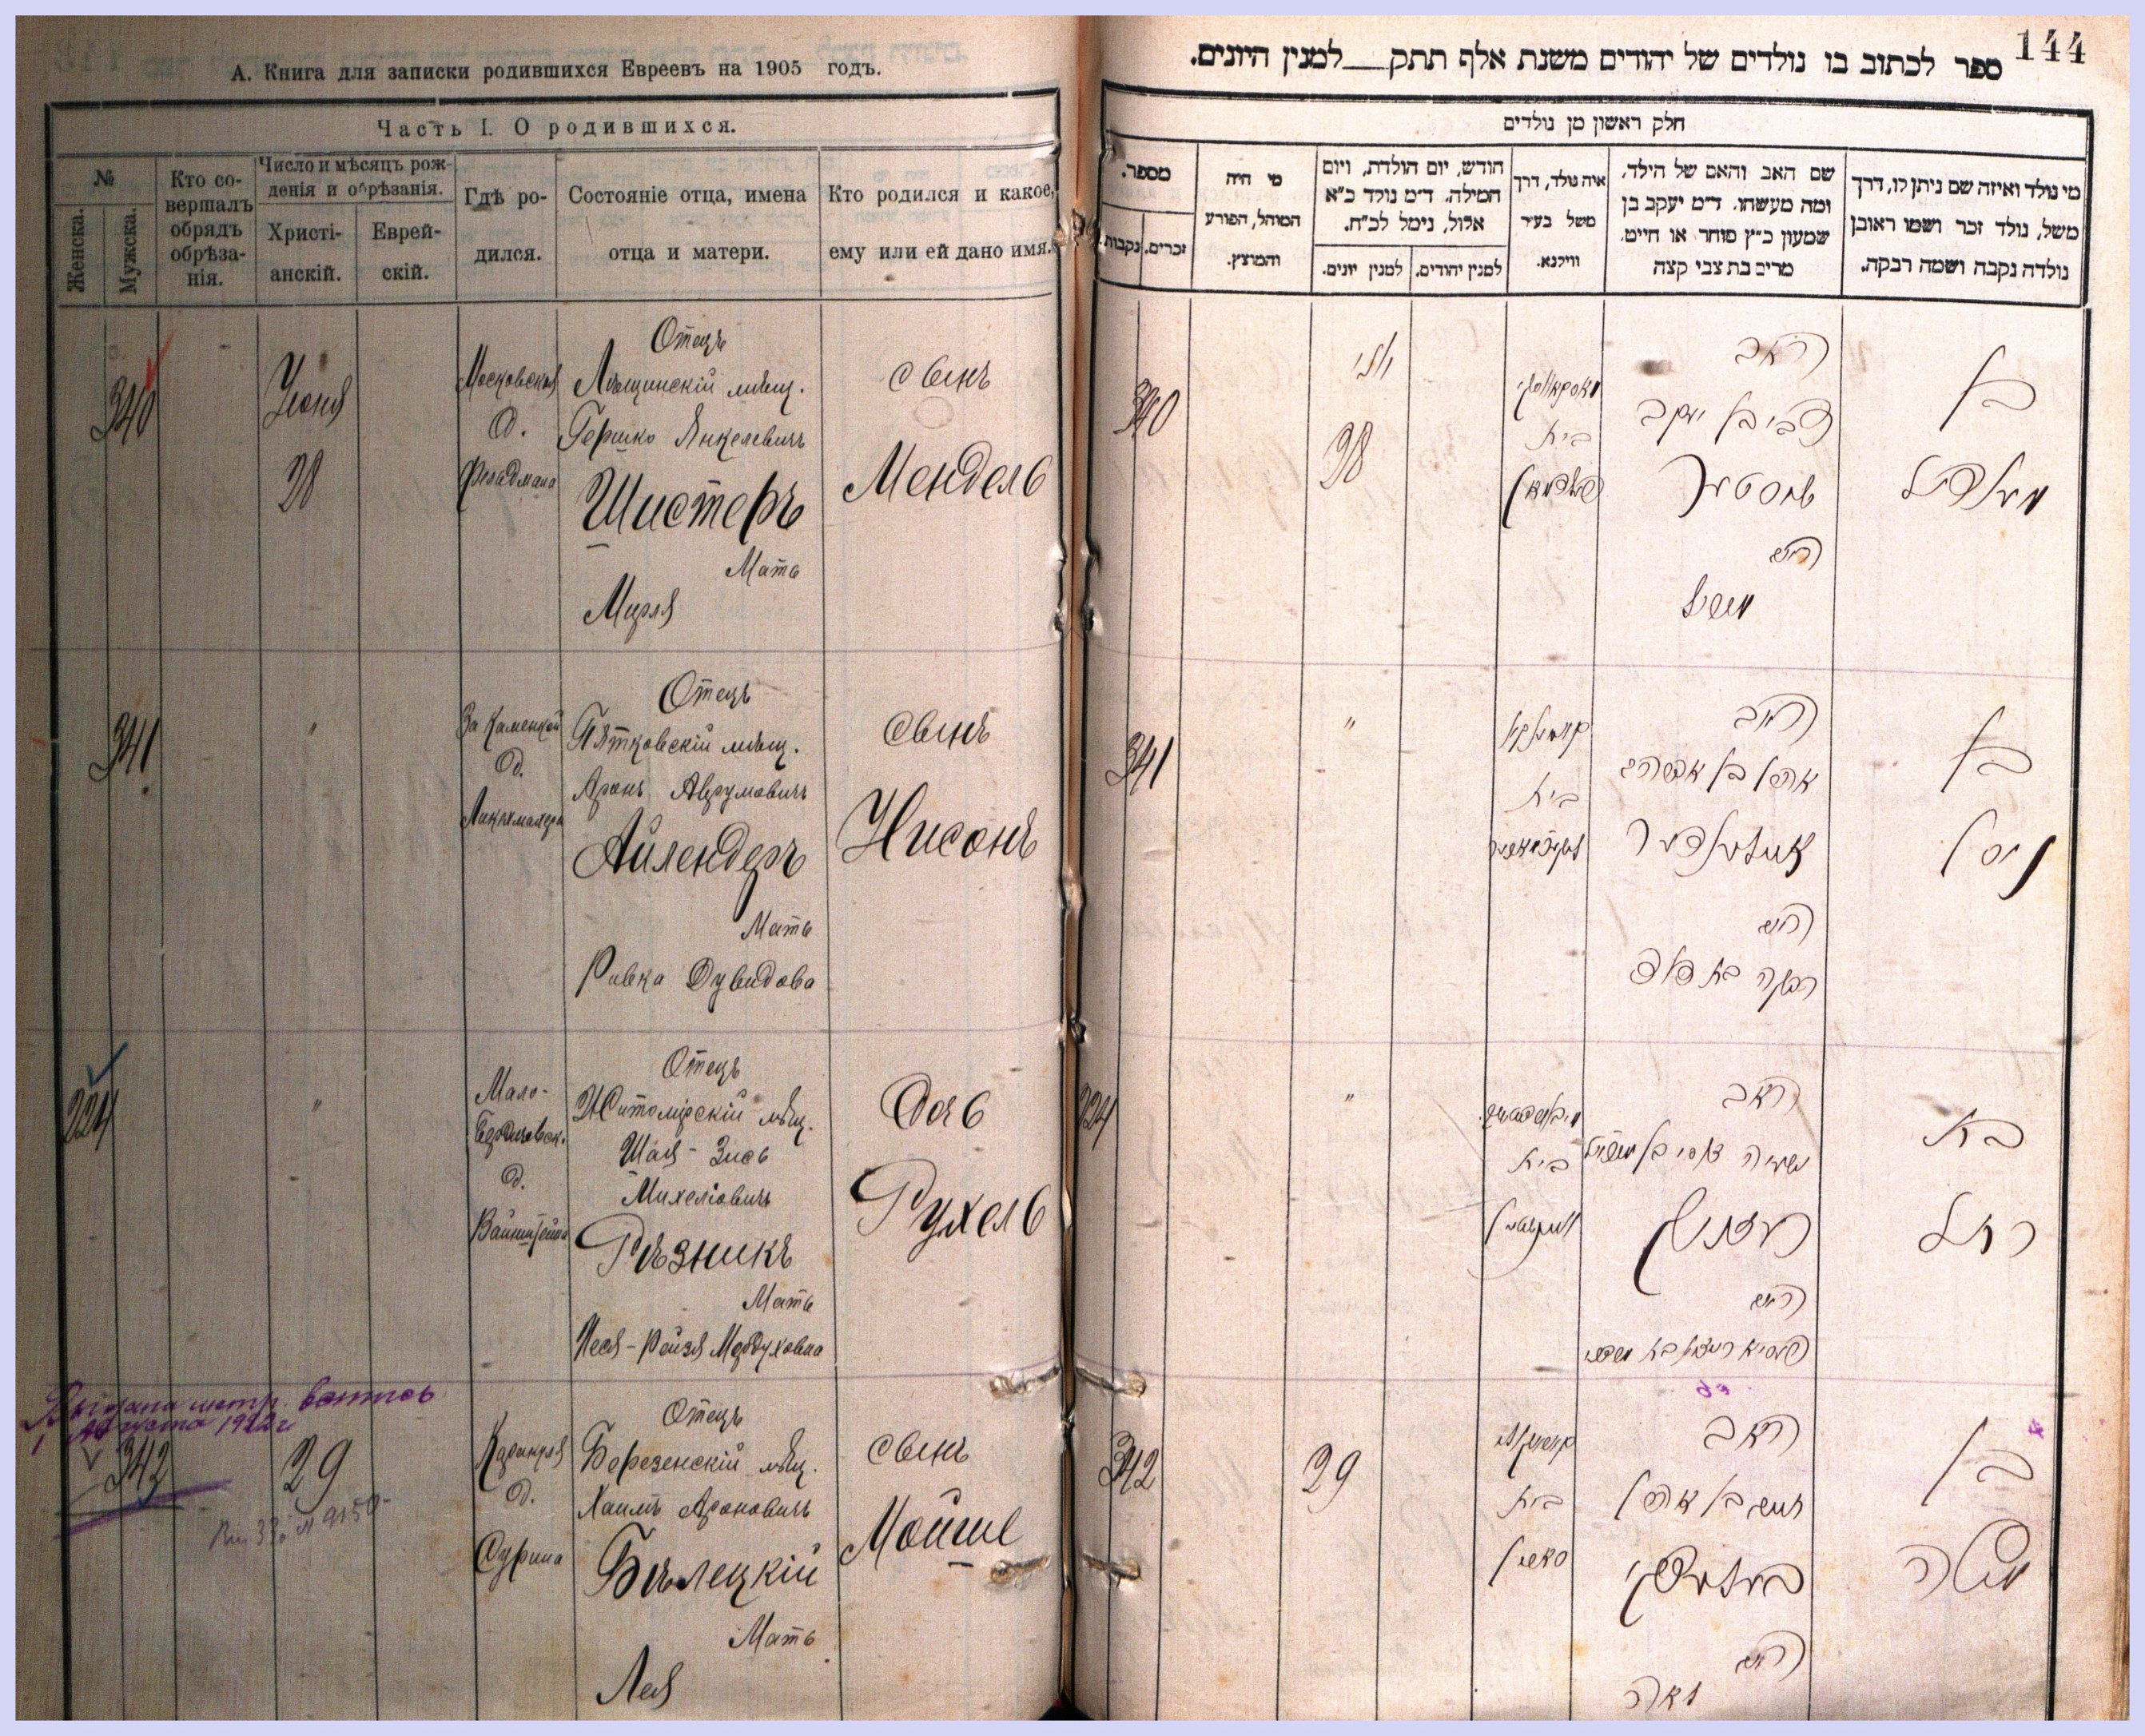 А. Книга для записки родившихся Евреевъ на 1905 годъ.
Часть I. О родившихся.
№
Женска.
Мужска.
Кто со-
вершалъ
обрядъ
обрѣза-
нія.
Число и мѣсяцъ рож-
денія и обрѣзанія.
Христі-
анскій.
Еврей-
скій.
Гдѣ ро-
дился.
Состояніе отца, имена
отца и матери.
Кто родился и какое,
ему или ей дано имя.
340
Іюня
28
Московская
д.
Фельдмана
Отецъ
мѣщ.
Гершко Янкелевичъ
Шистеръ
Мать
Мирля
сынъ
Мендель
341
"
За Каменкой
д.
Отецъ
Пятковскій мѣщ.
Аронъ Аврумовичъ
Айлендеръ
Мать
Ривка Дувидова
сынъ
Нисонъ
224
"
Мало-
Бердичевск.
д.
Вайнштейна
Отецъ
Житомірскій мѣщ.
Шая-Зись
Михеліовичъ
Рѣзникъ
Мать
Песя-Рейзя Мордуховна
Дочь
Рухель
Выдана метр. выпись
1 Августа 1922 г
342
29
д.
Сурина
Отецъ
Березенскій мѣщ.
Хаимъ Ароновичъ
Бѣлецкій
Мать
Лея
сынъ
Мойше
144
ספר לכתוב בו נולדים של יהודים משנת אלף תתק___למנין היונים.
חלק ראשון מן נולדים
מספר.
זכרים.
נקבות.
מי היה
המוהל, הפורע
והמוצץ.
חודש, יום הולדת, ויום
המילה. ד״מ נולד כ״א
אלול, נימל לכ״ח.
למנין יהודים.
למנין יונים.
איה נולד, דרך
משל בעיר
ווילנא.
שם האב והאם של הילד,
ומה מעשהו. ד״מ יעקב בן
שמעון כ״ץ סוחר או חייט,
מרים בת צבי קצה
מי נולד ואיזה שם ניתן לו, דרך
משל, נולד זכר ושמו ראובן
נולדה נקבה ושמה רבקה.
340
יוני
28
בית
האב
צבי בן יעקב
שיסטער
האם
בן
מענדיל
341
"
בית
האב
אהרן בן אברהם
איילענדער
האם
רבקה בת דוד
בן
ניסן
224
"
בית
האב
רעזניק
האם
בת
רחל
342
29
בית
האב
חיים בן אהרן
האם
לאה
בן
משה